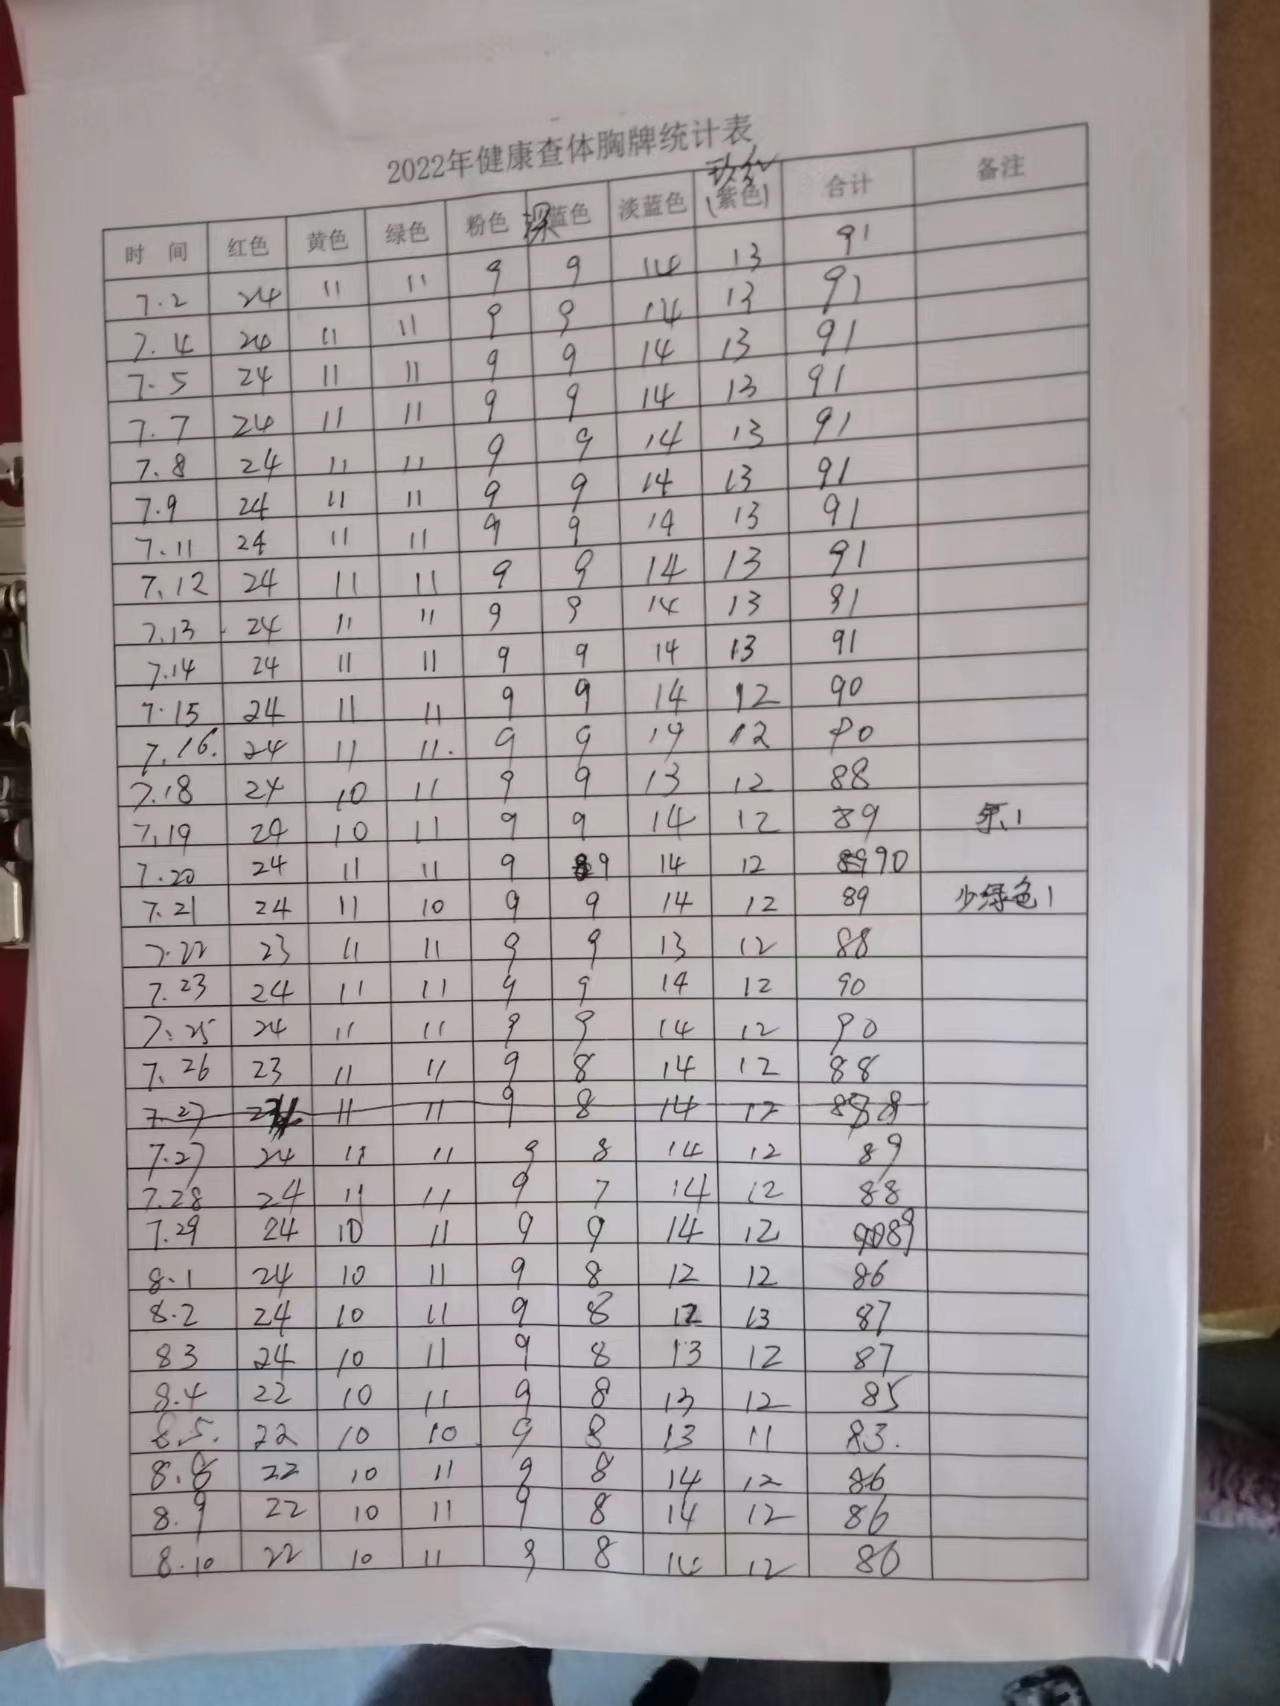 2022年健康查体胸牌统计表
时 间 红色 黄色 绿色 粉色 深蓝色 淡蓝色 玫红(紫色) 合计 备注
7.2 24 11 11 9 9 14 13 91
7.4 24 11 11 9 9 14 13 91
7.5 24 11 11 9 9 14 13 91
7.7 24 11 11 9 9 14 13 91
7.8 24 11 11 9 9 14 13 91
7.9 24 11 11 9 9 14 13 91
7.11 24 11 11 9 9 14 13 91
7.12 24 11 11 9 9 14 13 91
7.13 24 11 11 9 9 14 13 91
7.14 24 11 11 9 9 14 13 91
7.15 24 11 11 9 9 14 12 90
7.16. 24 11 11. 9 9 14 12 90
7.18 24 10 11 9 9 13 12 88
7.19 24 10 11 9 9 14 12 89 1
7.20 24 11 11 9 9 14 12 90
7.21 24 11 10 9 9 14 12 89 少绿色1
7.22 23 11 11 9 9 13 12 88
7.23 24 11 11 9 9 14 12 90
7.25 24 11 11 9 9 14 12 90
7.26 23 11 11 9 8 14 12 88
7.27 11 11 9 8 14 12
7.27 24 11 11 9 8 14 12 89
7.28 24 11 11 9 7 14 12 88
7.29 24 10 11 9 9 14 12 89
8.1 24 10 11 9 8 12 12 86
8.2 24 10 11 9 8 12 13 87
83 24 10 11 9 8 13 12 87
8.4 22 10 11 9 8 13 12 85
8.5. 22 10 10 9 8 13 11 83.
8.8 22 10 11 9 8 14 12 86
8.9 22 10 11 9 8 14 12 86
8.10 22 10 11 9 8 14 12 86